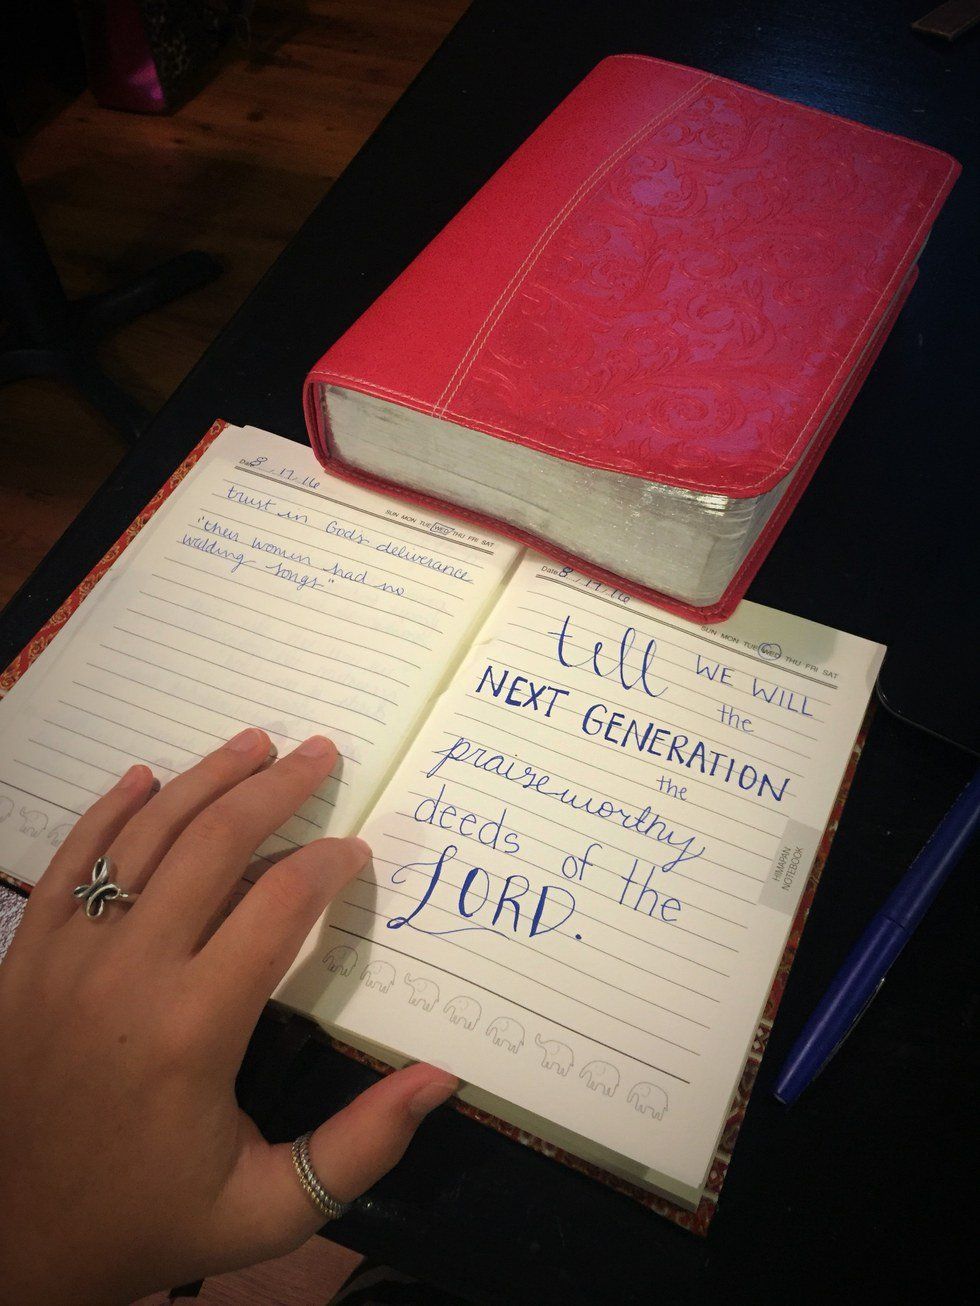 Date 8 . 17 . 16
SUN MON TUE WED THU FRI SAT
trust in God's deliverance
"their women had no
wedding songs"
Date 8 . 17 . 16
SUN MON TUE WED THU FRI SAT
tell WE WILL
the
NEXT GENERATION
the
praiseworthy
deeds of the
LORD.
HIMAPAN
NOTEBOOK